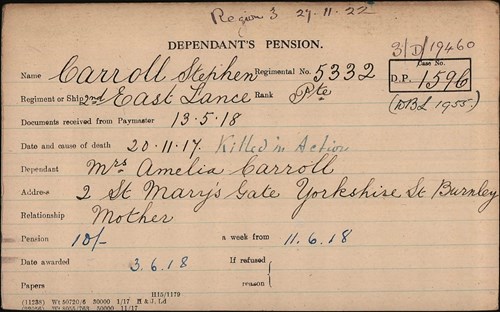 Region 3 27-11-22
DEPENDANT'S PENSION.
3/D/19460
Name Carroll Stephen Regimental No. 5332
Case No.
D.P. 1596
Regiment or Ship 2nd East Lancs Rank Pte
(WBL 1955.)
Documents received from Paymaster 13.5.18
Date and cause of death 20.11.17. Killed in Action
Dependant Mrs Amelia Carroll
Address 2 St Mary's Gate Yorkshire St Burnley
Relationship Mother
Pension 10/- a week from 11.6.18
Date awarded 3.6.18 If refused
Papers reason
H15/1179
(11238) Wt 50720/6 50000 1/17 H & J, Ld
50000 11/17